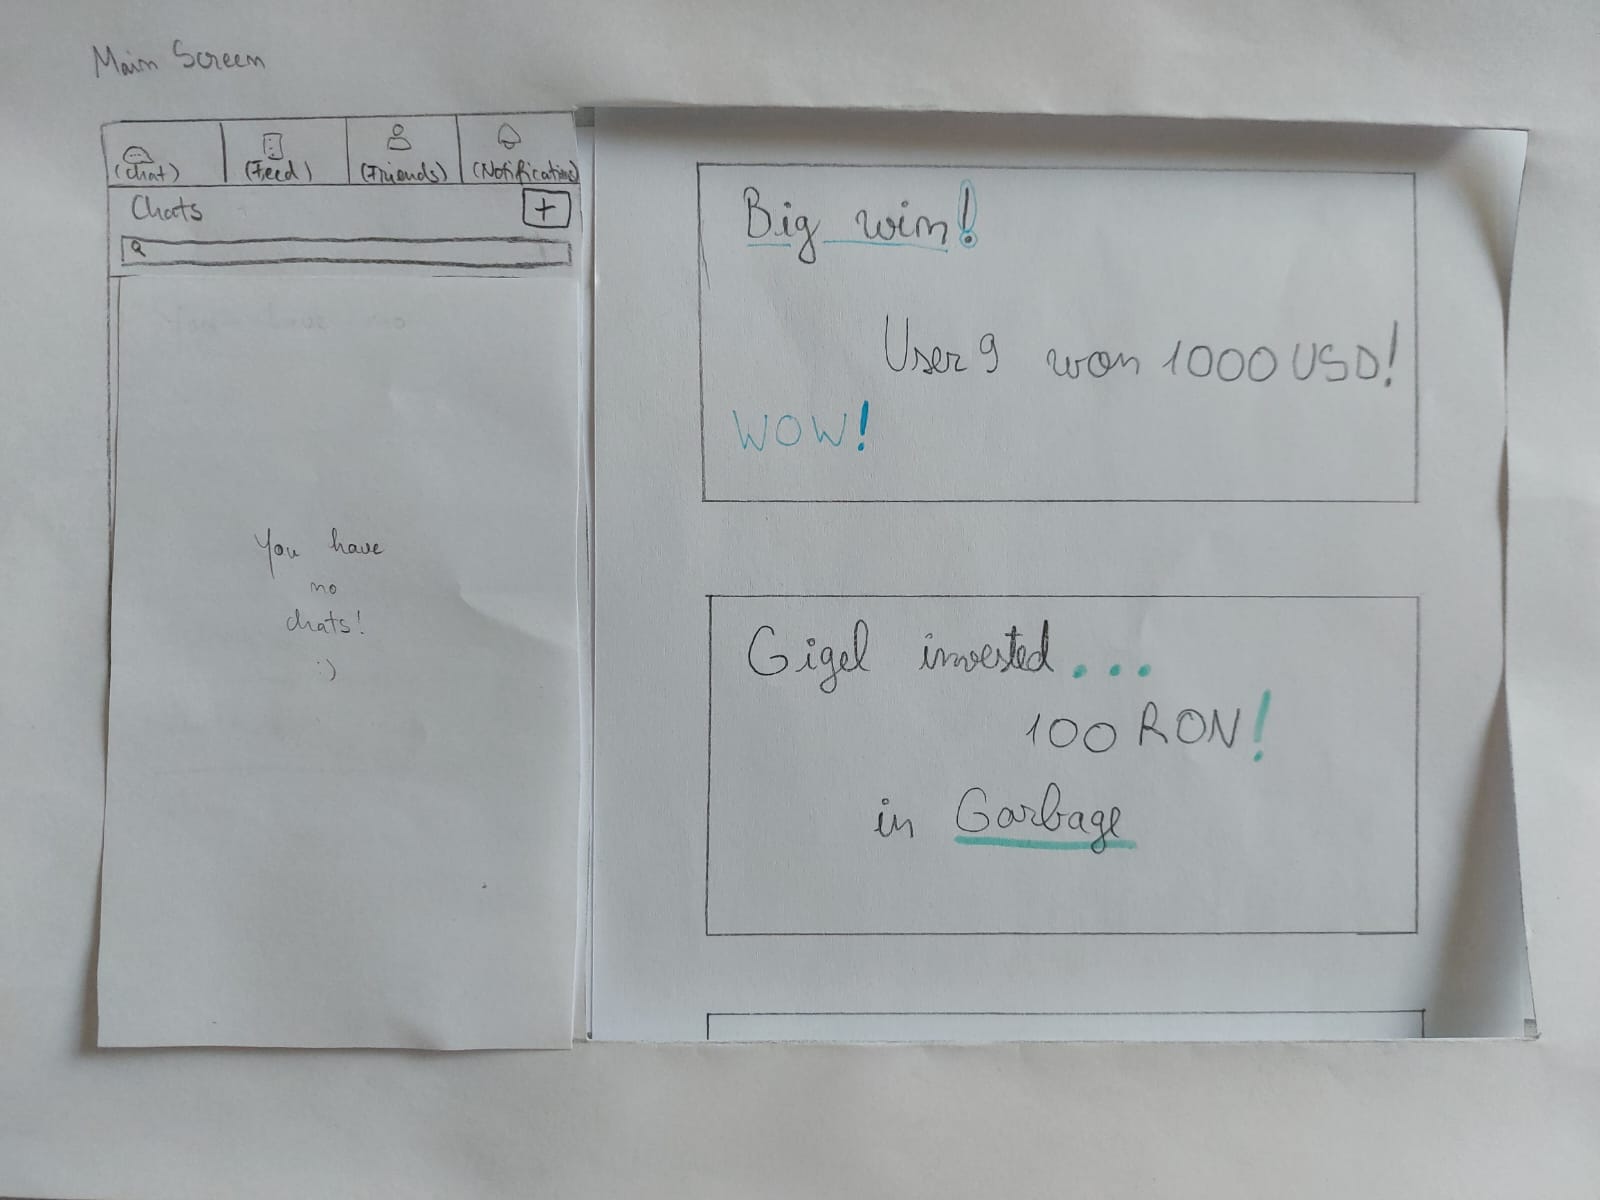 Main Screen
(Chat) (Feed) (Friends) (Notifications)
Chats +
You have
no
chats!
:)
Big win!
User 9 won 1000 USD!
WOW!
Gigel invested...
100 RON!
in Garbage